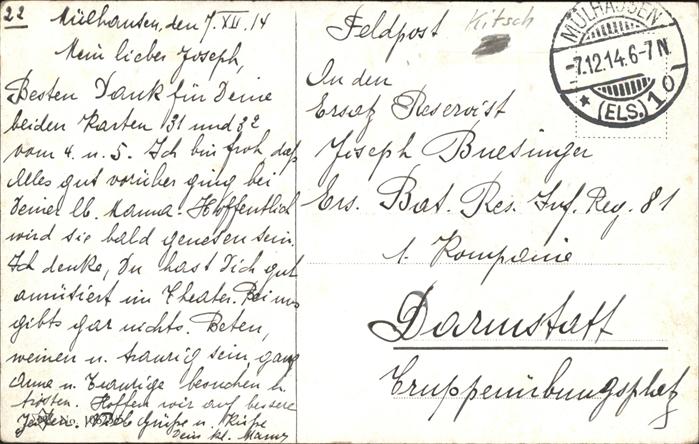 22 Mülhausen, den 7. XII. 14
Mein lieber Joseph,
Besten Dank für Deine
beiden Karten 31 und 32
vom 4. u. 5. Ich bin froh daß
Alles gut vorüber ging bei
Deiner lb. Mama. Hoffentlich
wird sie bald genesen sein.
Ich denke, Du hast Dich gut
amüsiert im Theater. Bei uns
gibts gar nichts. Beten,
weinen u. traurig sein, ganz
Arme u. Traurige besuchen u.
trösten. Hoffen wir auf bessere
Zeiten. Grüße u. Küsse
Dein kl.
Feldpost
Kitsch
MÜLHAUSEN
-7.12.14.6-7N.
* (ELS.) 10
An den
Ersatz Reservist
Joseph Buesinger
Ers. Bat. Res. Inf. Reg. 81
1. Kompanie
Darmstatt
Truppenübungsplatz